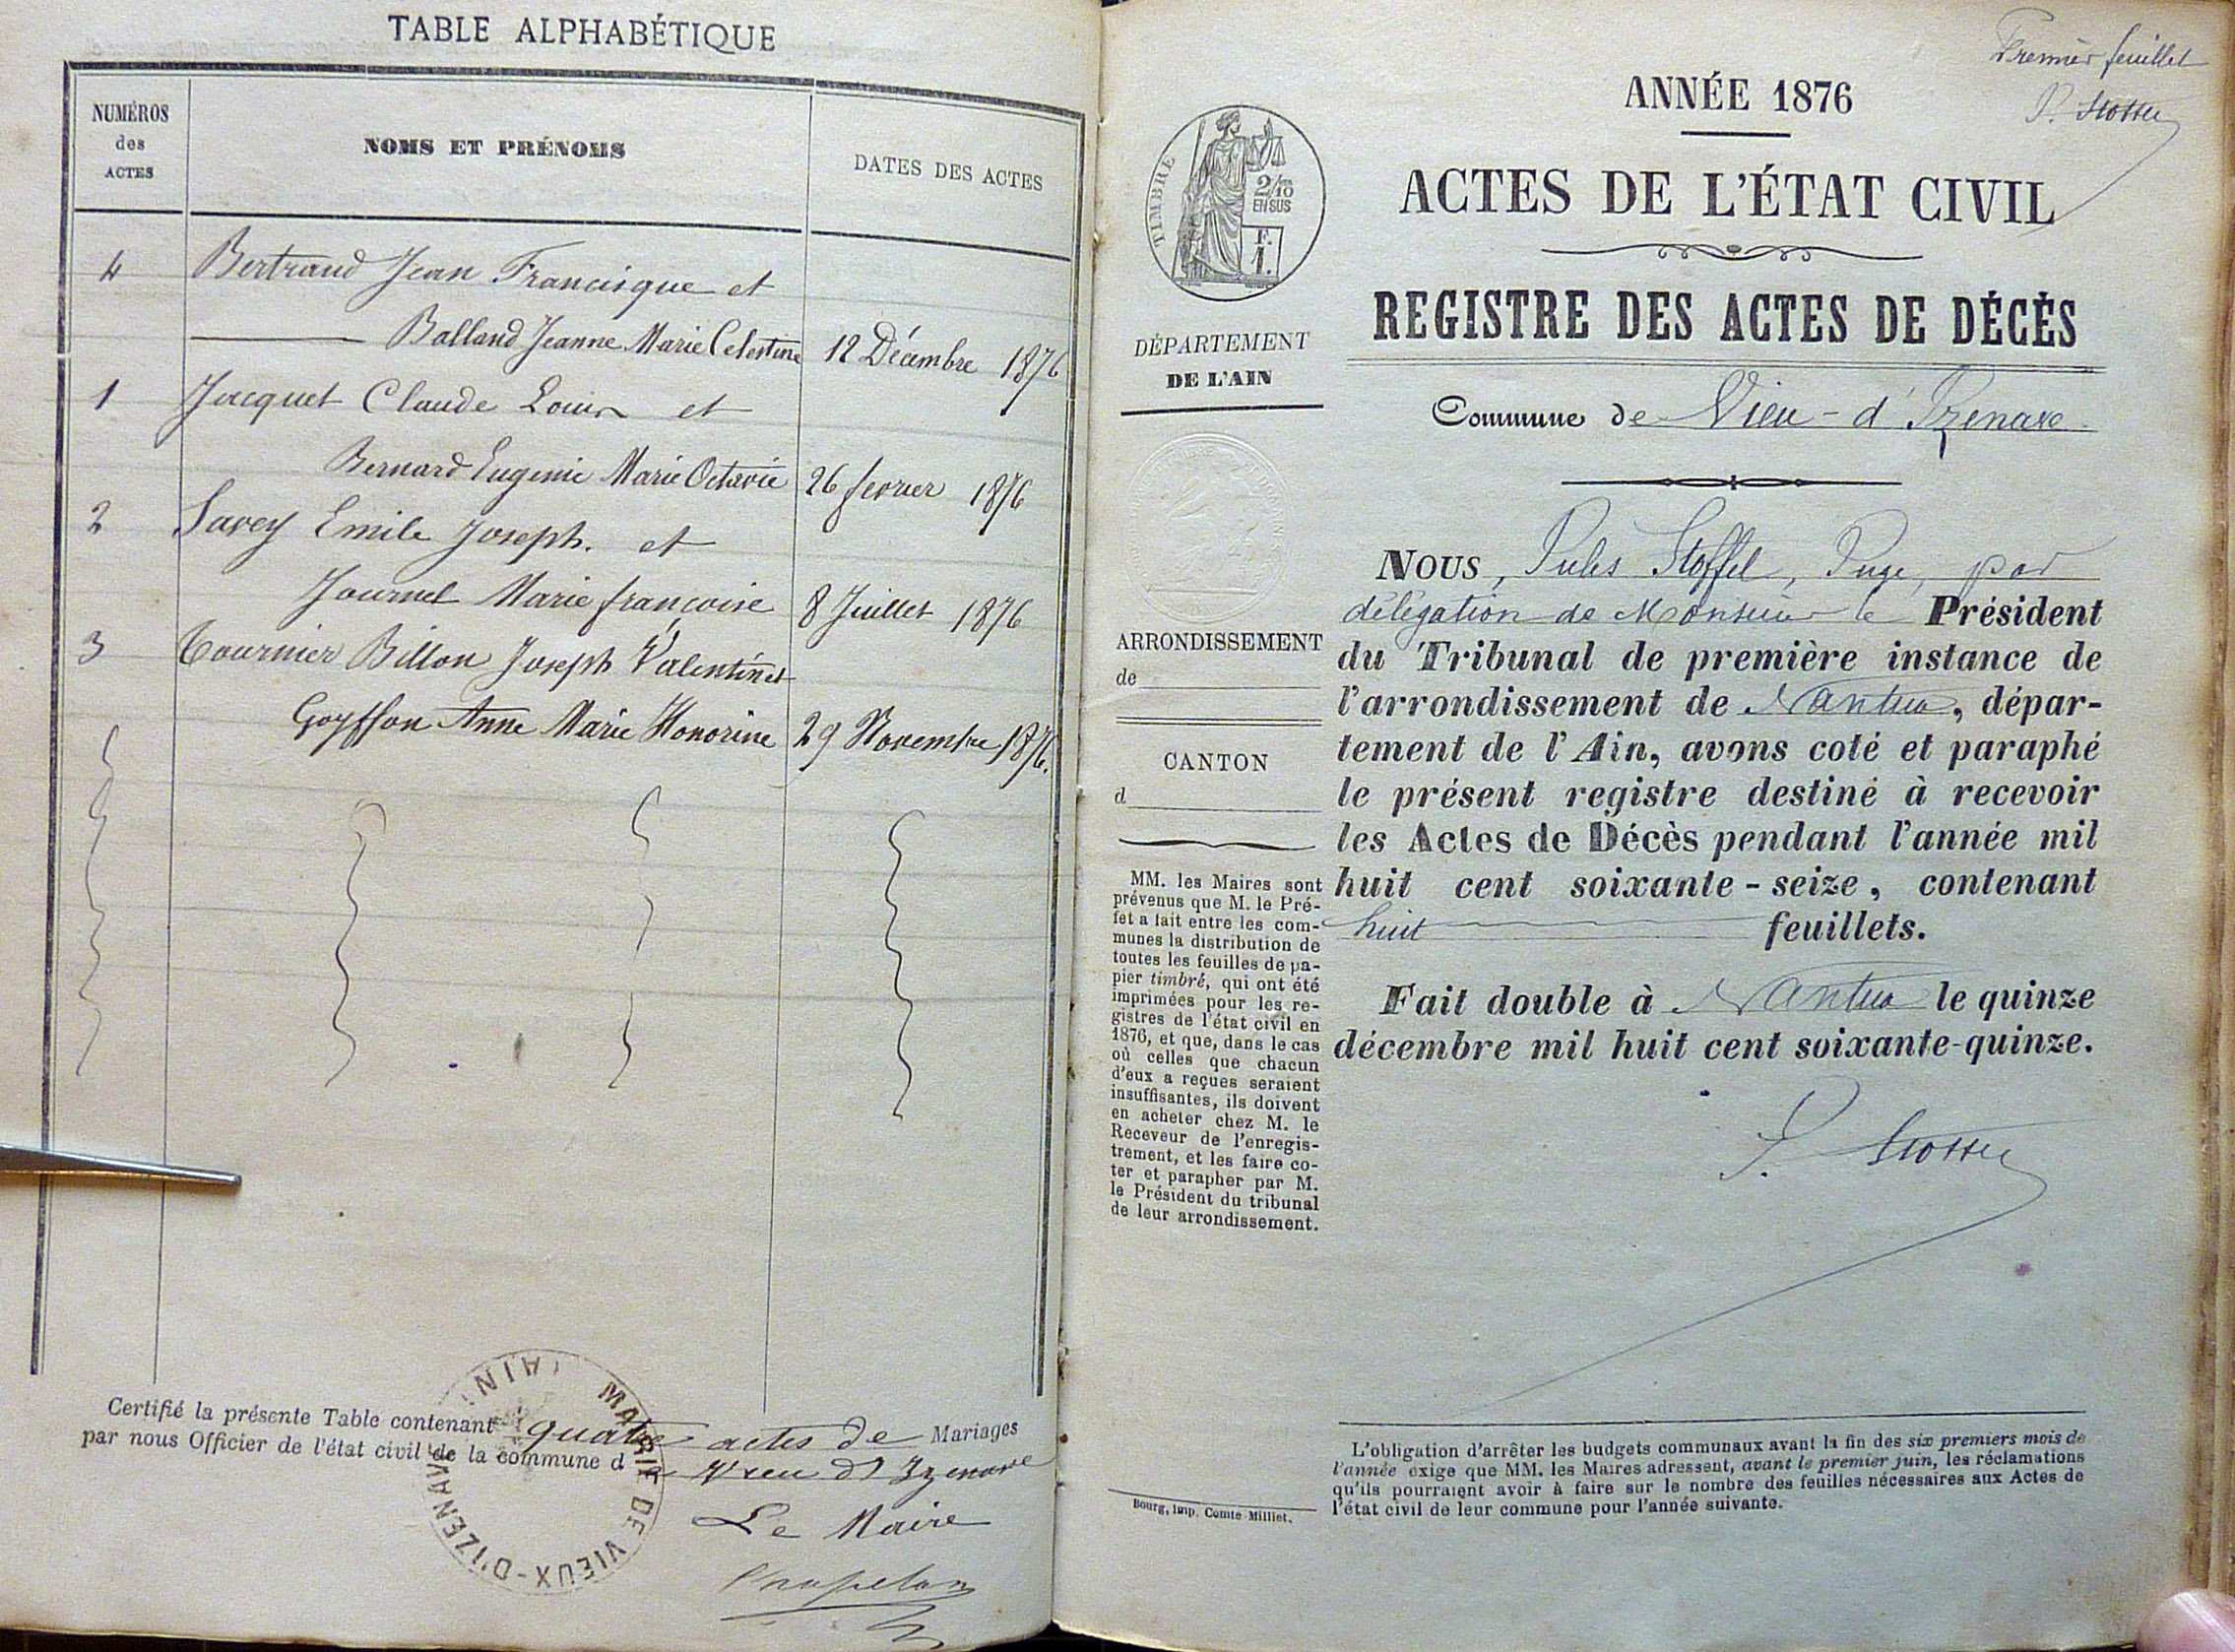 TABLE ALPHABÉTIQUE
NUMÉROS
des
ACTES
NOMS ET PRÉNOMS
DATES DES ACTES
4 Bertrand Jean Francisque et
Balland Jeanne Marie Celestine 12 Décembre 1876
1 Jacquet Claude Louis et
Bernard Eugenie Marie Octavie 26 fevrier 1876
2 Savey Emile Joseph. et
Journet Marie françoise 8 Juillet 1876
3 Tournier Billon Joseph Valentin et
Goyffon Anne Marie Honorine 29 Novembre 1876.
Certifié la présente Table contenant quatre actes de Mariages
par nous Officier de l'état civil de la commune de Vieu d'Izenave
Le Maire
Chapelan
MAIRIE DE VIEUX-D'IZENAVE (AIN)
Premier feuillet
ANNÉE 1876
TIMBRE
2/10
EN SUS
F.
1.
ACTES DE L'ÉTAT CIVIL
REGISTRE DES ACTES DE DÉCÈS
DÉPARTEMENT
DE L'AIN
Commune de Vieu-d'Izenave
Nous, Jules Stoffel, Juge, par
délégation de Monsieur le Président
du Tribunal de première instance de
l'arrondissement de Nantua, dépar-
tement de l'Ain, avons coté et paraphé
le présent registre destiné à recevoir
les Actes de Décès pendant l'année mil
huit cent soixante-seize, contenant
huit feuillets.
Fait double à Nantua le quinze
décembre mil huit cent soixante-quinze.
ARRONDISSEMENT
de
CANTON
d
MM. les Maires sont
prévenus que M. le Pré-
fet a fait entre les com-
munes la distribution de
toutes les feuilles de pa-
pier timbré, qui ont été
imprimées pour les re-
gistres de l'état civil en
1876, et que, dans le cas
où celles que chacun
d'eux a reçues seraient
insuffisantes, ils doivent
en acheter chez M. le
Receveur de l'enregis-
trement, et les faire co-
ter et parapher par M.
le Président du tribunal
de leur arrondissement.
Bourg, Imp. Comte-Milliet.
L'obligation d'arrêter les budgets communaux avant la fin des six premiers mois de
l'année exige que MM. les Maires adressent, avant le premier juin, les réclamations
qu'ils pourraient avoir à faire sur le nombre des feuilles nécessaires aux Actes de
l'état civil de leur commune pour l'année suivante.